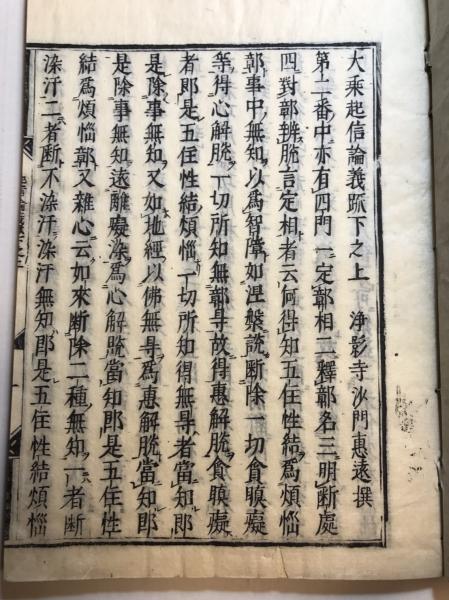 大乘起信論義䟽下之上　淨影寺沙門惠遠撰
第二番中亦有四門一定鄣相二釋鄣名三明斷處
四對鄣辨脫言定相者云何得知五住性結爲煩惱
鄣事中無知以爲智障如涅槃說斷除一切貪瞋癡
等得心解脫一切所知無鄣㝵故得惠解脫貪瞋癡
者即是五住性結煩惱一切所知得無㝵者當知即
是除事無知又如地經以佛無㝵爲惠解脫當知即
是除事無知遠離癡染爲心解脫當知即是五住性
結爲煩惱鄣又雜心云如來斷除二種無知一者斷
染汙二者斷不染汙染汙無知即是五住性結煩惱